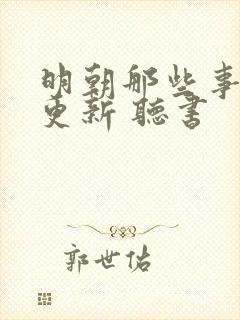 明朝那些事
更新 聽書
郭世佑